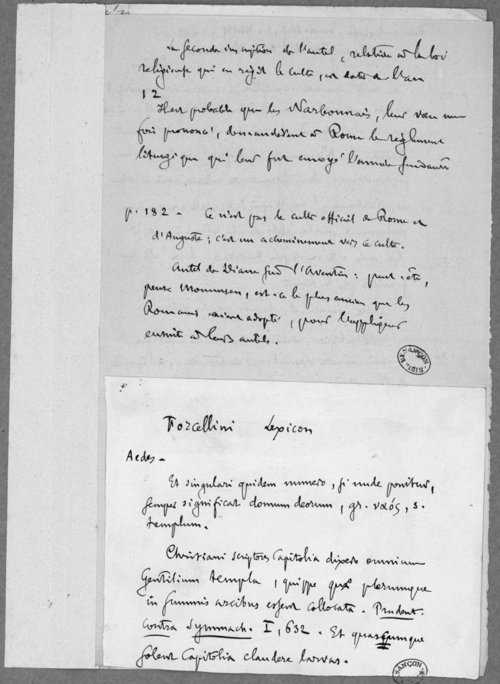 La seconde inscription de l'autel, relative à la loi
religieuse qui en régit le culte, est datée de l'an
12
Il est probable que les Narbonnais, leur vœu une
fois prononcé, demandèrent à Rome le règlement
liturgique qui leur fut envoyé l'année suivante
p. 182 - Ce n'est pas le culte officiel de Rome et
d'Auguste ; c'est un acheminement vers ce culte.
Autel de Diane sur l'Aventin : peut-être,
pense Mommsen, est-ce le plus ancien que les
Romains aient adopté, pour l'appliquer
ensuite à leurs autels.
BIBL. DE BESANÇON
Forcellini Lexicon
Aedes -
Et singulari quidem numero, si nude ponitur,
semper significat domum deorum, gr. ναός, s.
templum.
Christiani scriptores Capitolia dixere omnium
Gentilium templa, quippe quae plerumque
in summis arcibus essent collocata. Prudent.
contra Symmach. I, 632. Et quascumque
solent Capitolia claudere larvas.